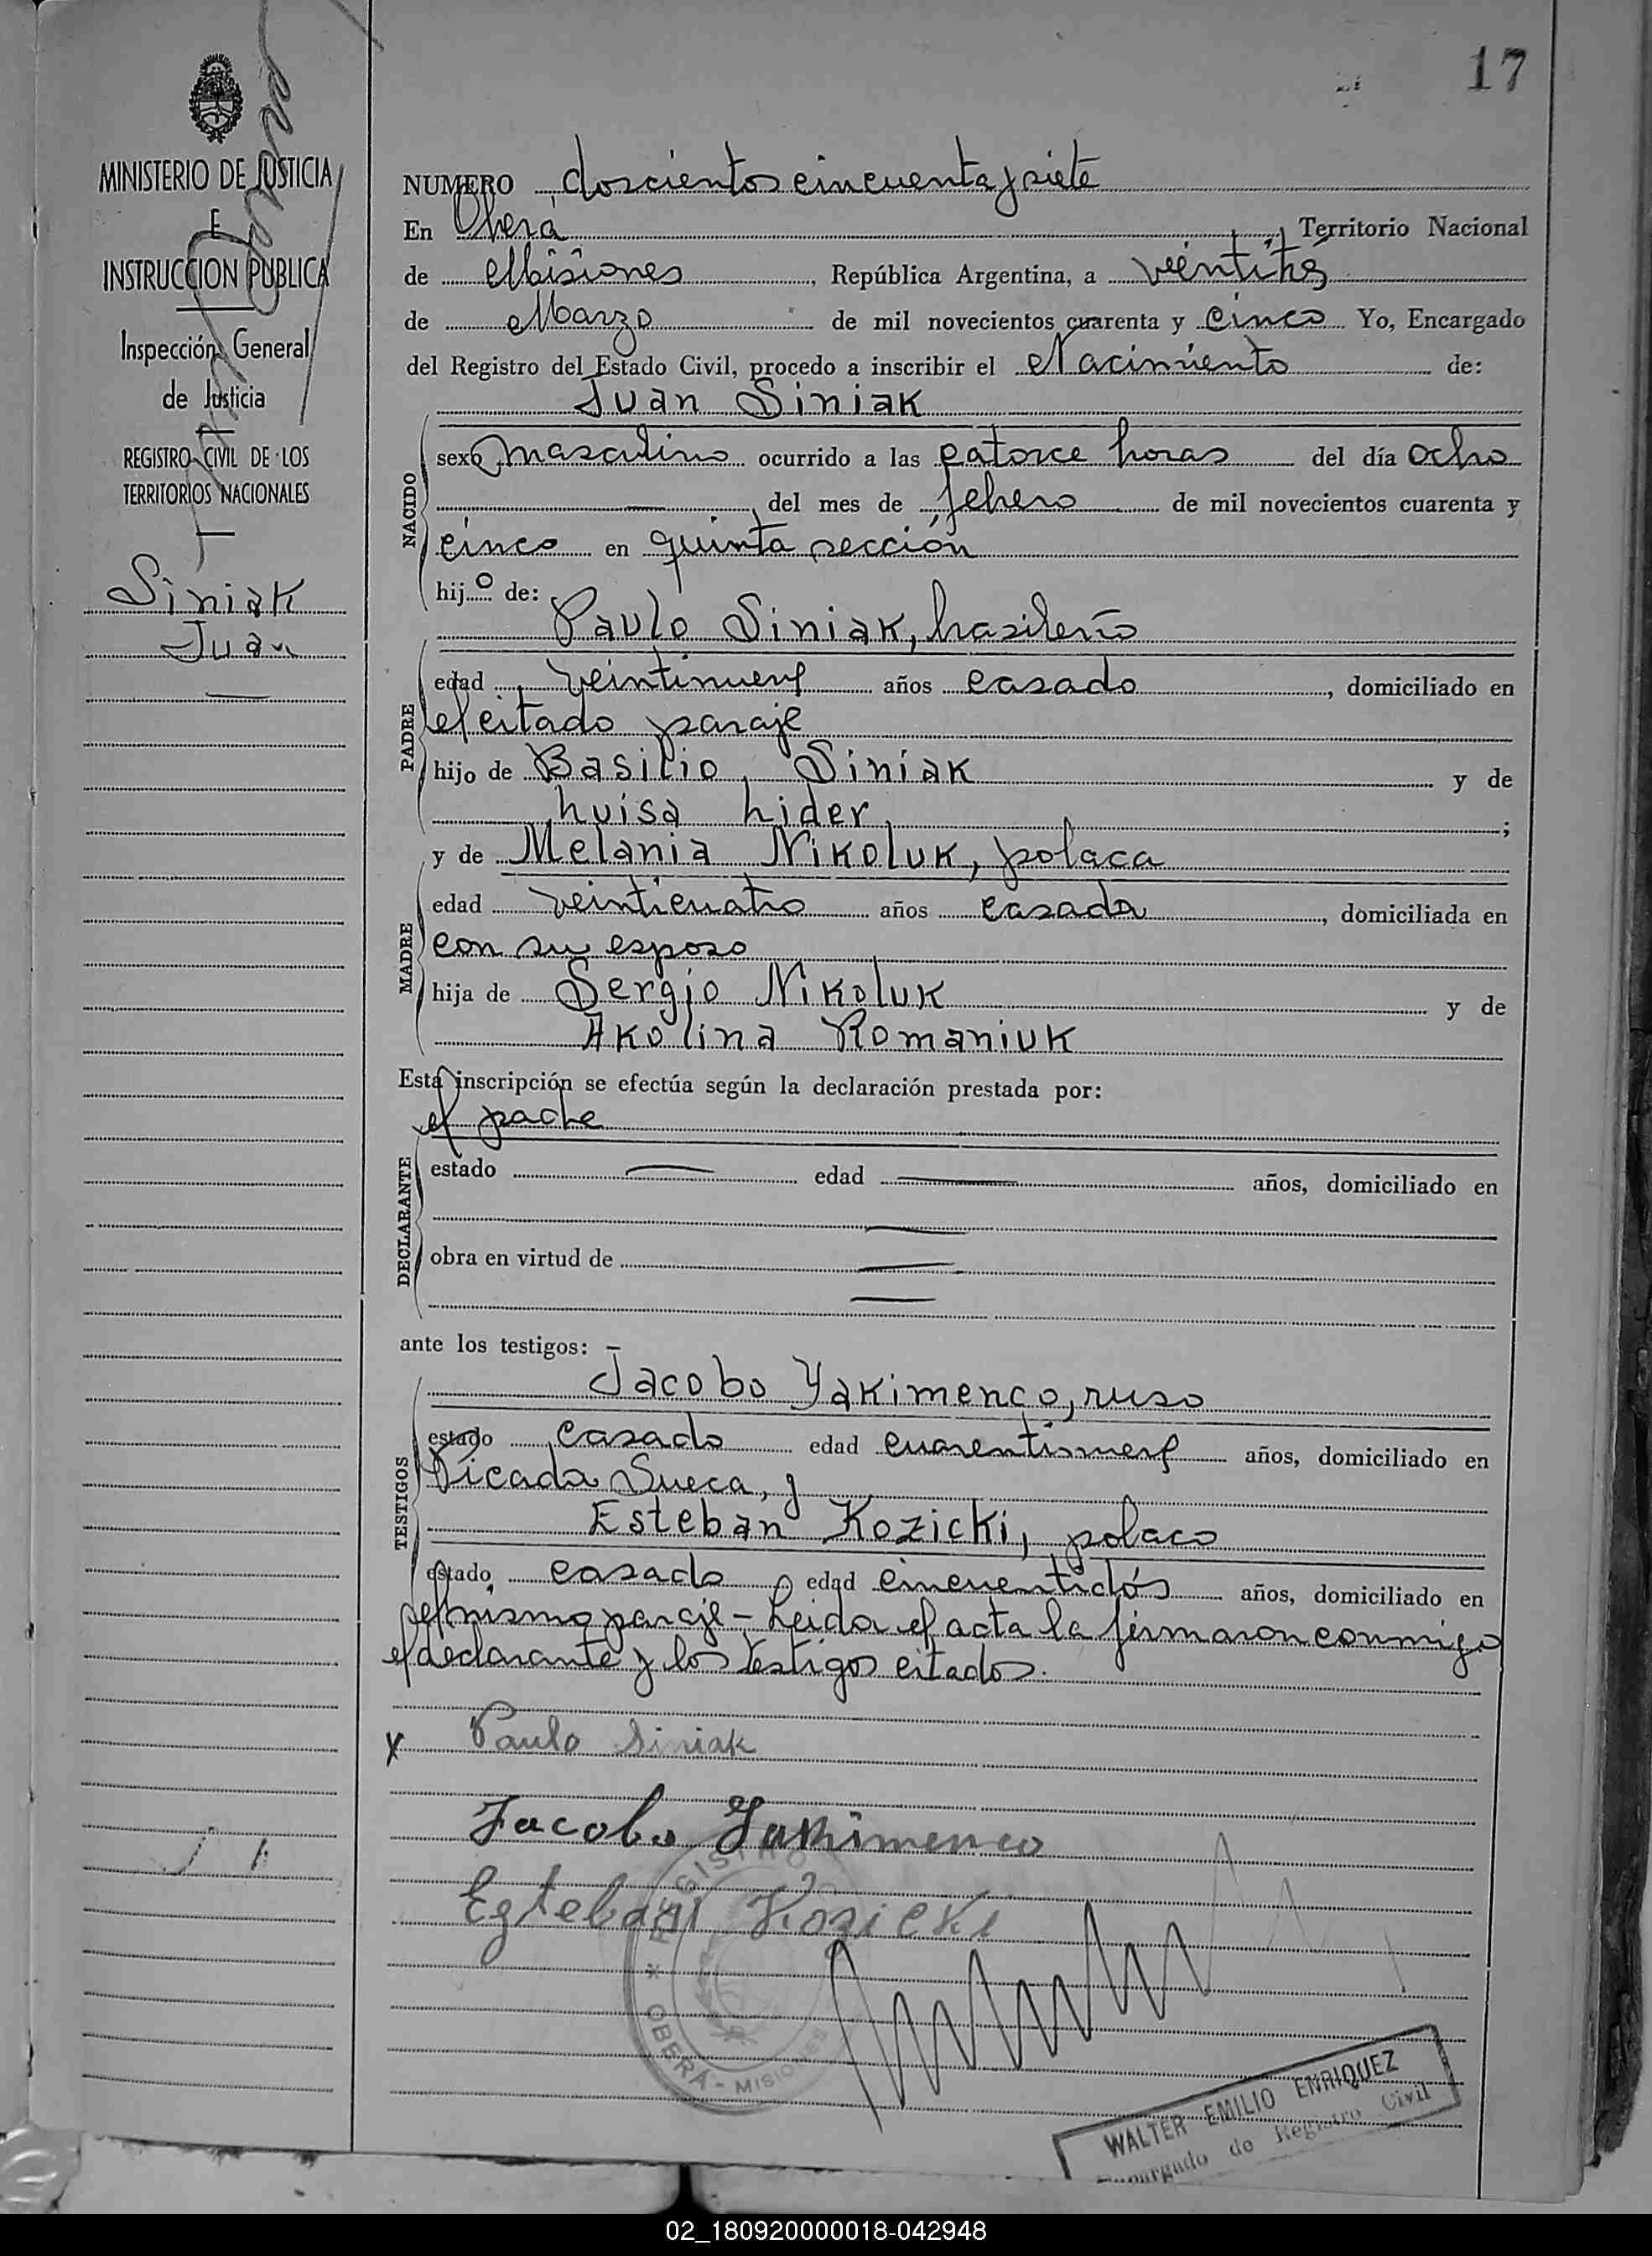 17
MINISTERIO DE JUSTICIA
E
INSTRUCCION PUBLICA
Inspección General
de Justicia
REGISTRO CIVIL DE LOS
TERRITORIOS NACIONALES
Siniak
Juan
NUMERO doscientos cincuenta y siete
En Oberá, Territorio Nacional
de Misiones, República Argentina, a veintitrés
de Marzo de mil novecientos cuarenta y cinco Yo, Encargado
del Registro del Estado Civil, procedo a inscribir el Nacimiento de:
Juan Siniak
NACIDO
sexo masculino ocurrido a las catorce horas del día ocho
del mes de febrero de mil novecientos cuarenta y
cinco en quinta sección
hijo de:
Paulo Siniak, brasileño
PADRE
edad veintinueve años casado, domiciliado en
el citado paraje
hijo de Basilio Siniak y de
Luisa Lider;
y de Melania Nikoluk, polaca
MADRE
edad veinticuatro años casada, domiciliada en
con su esposo
hija de Sergio Nikoluk y de
Akolina Romaniuk
Esta inscripción se efectúa según la declaración prestada por:
el padre
DECLARANTE
estado edad años, domiciliado en
obra en virtud de
ante los testigos:
Jacobo Yakimenco, ruso
TESTIGOS
estado casado edad cuarentinueve años, domiciliado en
Picada Sueca, y
Esteban Kozicki, polaco
estado casado edad cincuentidós años, domiciliado en
el mismo paraje - Leida el acta la firmaron conmigo
el declarante y los testigos citados.
x Paulo Siniak
Jacobo Yakimenco
Egteban Kozicki
REGISTRO
OBERÁ - MISIONES
WALTER EMILIO ENRIQUEZ
Encargado de Registro Civil
02_180920000018-042948